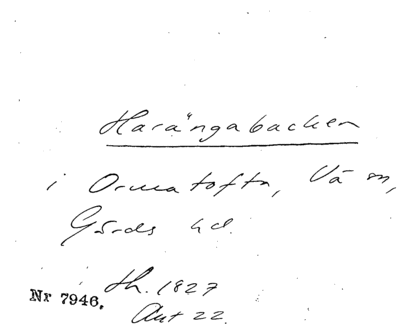 Harängabacken
i Ormatofta, Vä sn,
Gärds hd.
Nr 7946. th. 1827
Akt 22.